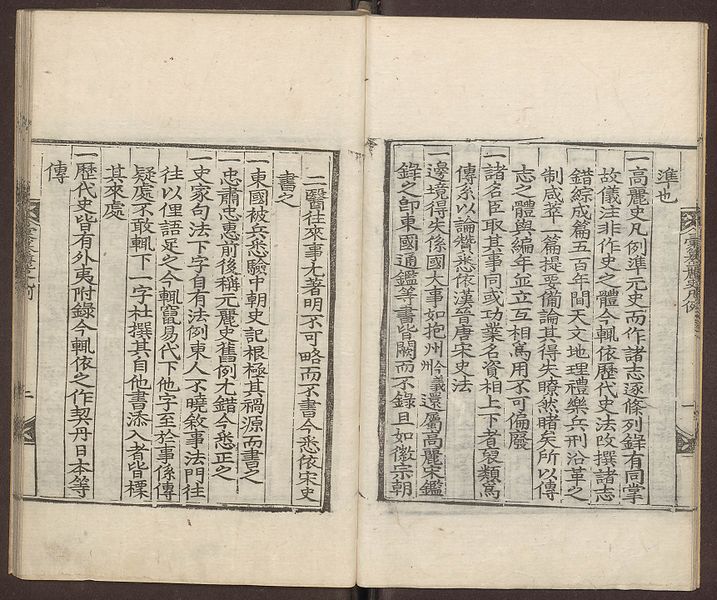 準也
一高麗史凡例準元史而作諸志逐條列錄有同掌
故儀注非作史之體今輒依歷代史法改撰諸志
錯綜成篇五百年間天文地理禮樂兵刑沿革之
制咸萃一篇提要備論其得失瞭然睹矣所以傳
志之體與編年並立互相爲用不可偏廢
一諸名臣取其事同或功業名資相上下者裒類爲
傳系以論贊悉依漢晉唐宋史法
一邊境得失係國大事如抱州今義州還屬高麗宋鑑
錄之卽東國通鑑等書皆闕而不錄且如徽宗朝
二醫往來事尤著明不可略而不書今悉依宋史
書之
一東國被兵悉驗中朝史記根極其禍源而書之
一忠肅忠惠前後稱元麗史舊例尤錯今悉正之
一史家句法下字自有法例東人不曉敘事法門往
往以俚語足之今輒竄易代下他字至於事係傳
疑處不敢輒下一字杜撰其自他書添入者皆標
其來處
一歷代史皆有外夷附錄今輒依之作契丹日本等
傳